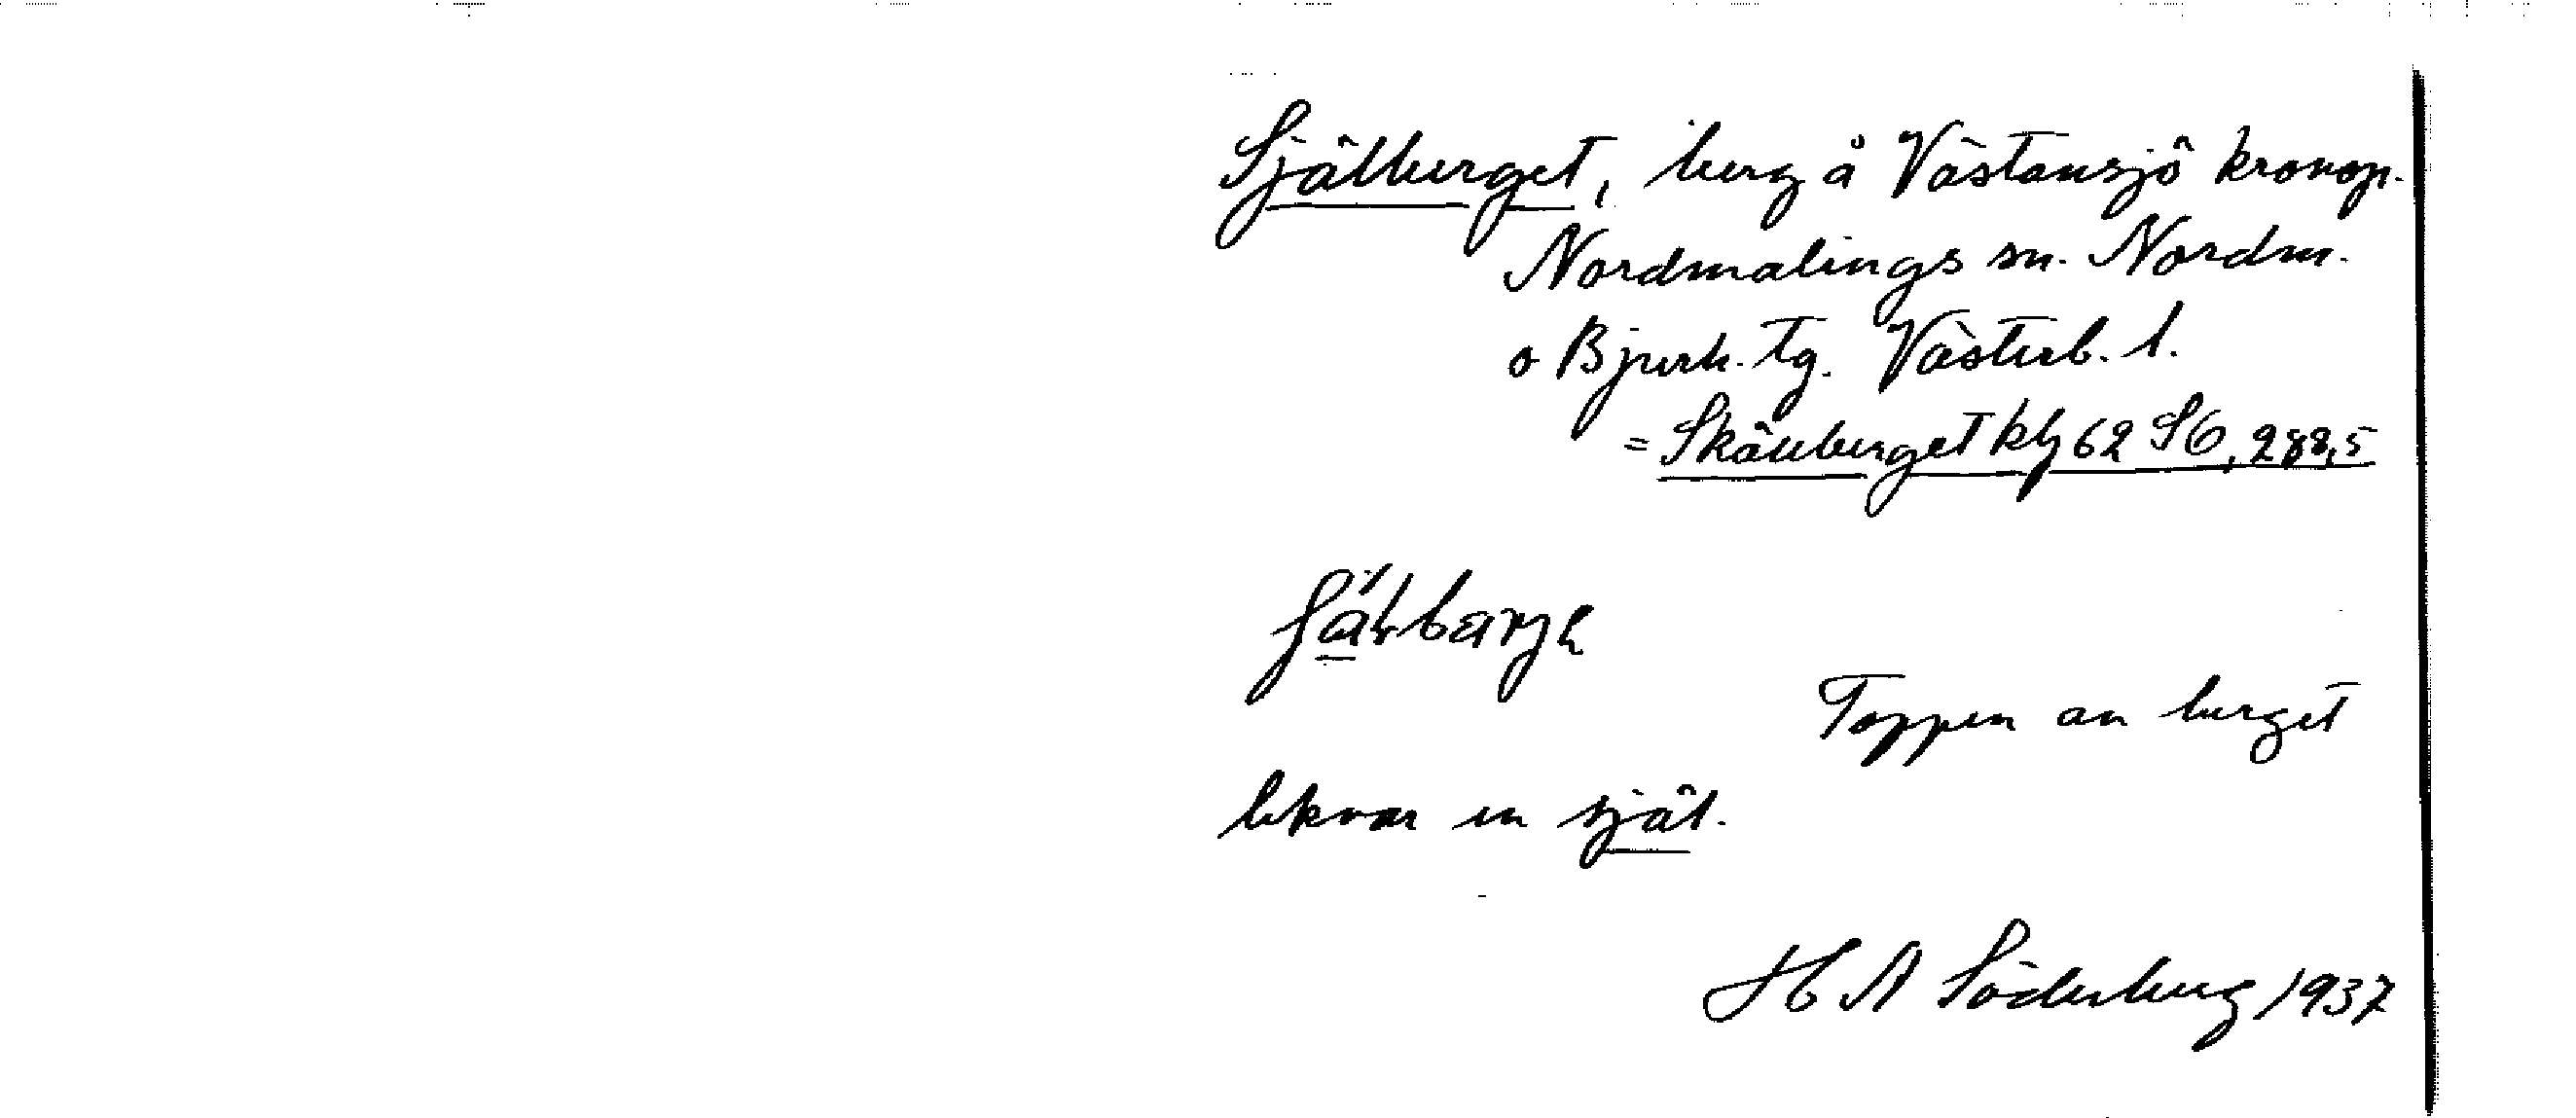 Själberget, berg å Västansjö kronop.
Nordmalings sn. Nordm.
o Bjurh. tg. Västerb. l.
= Skäuberget kbl 62 SO, 288,5
Toppen av berget
liknar en själ.
H A Söderberg 1937